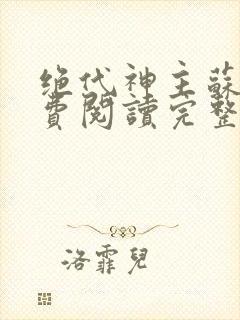 绝代神主蘇
費閱讀完整
洛霏兒